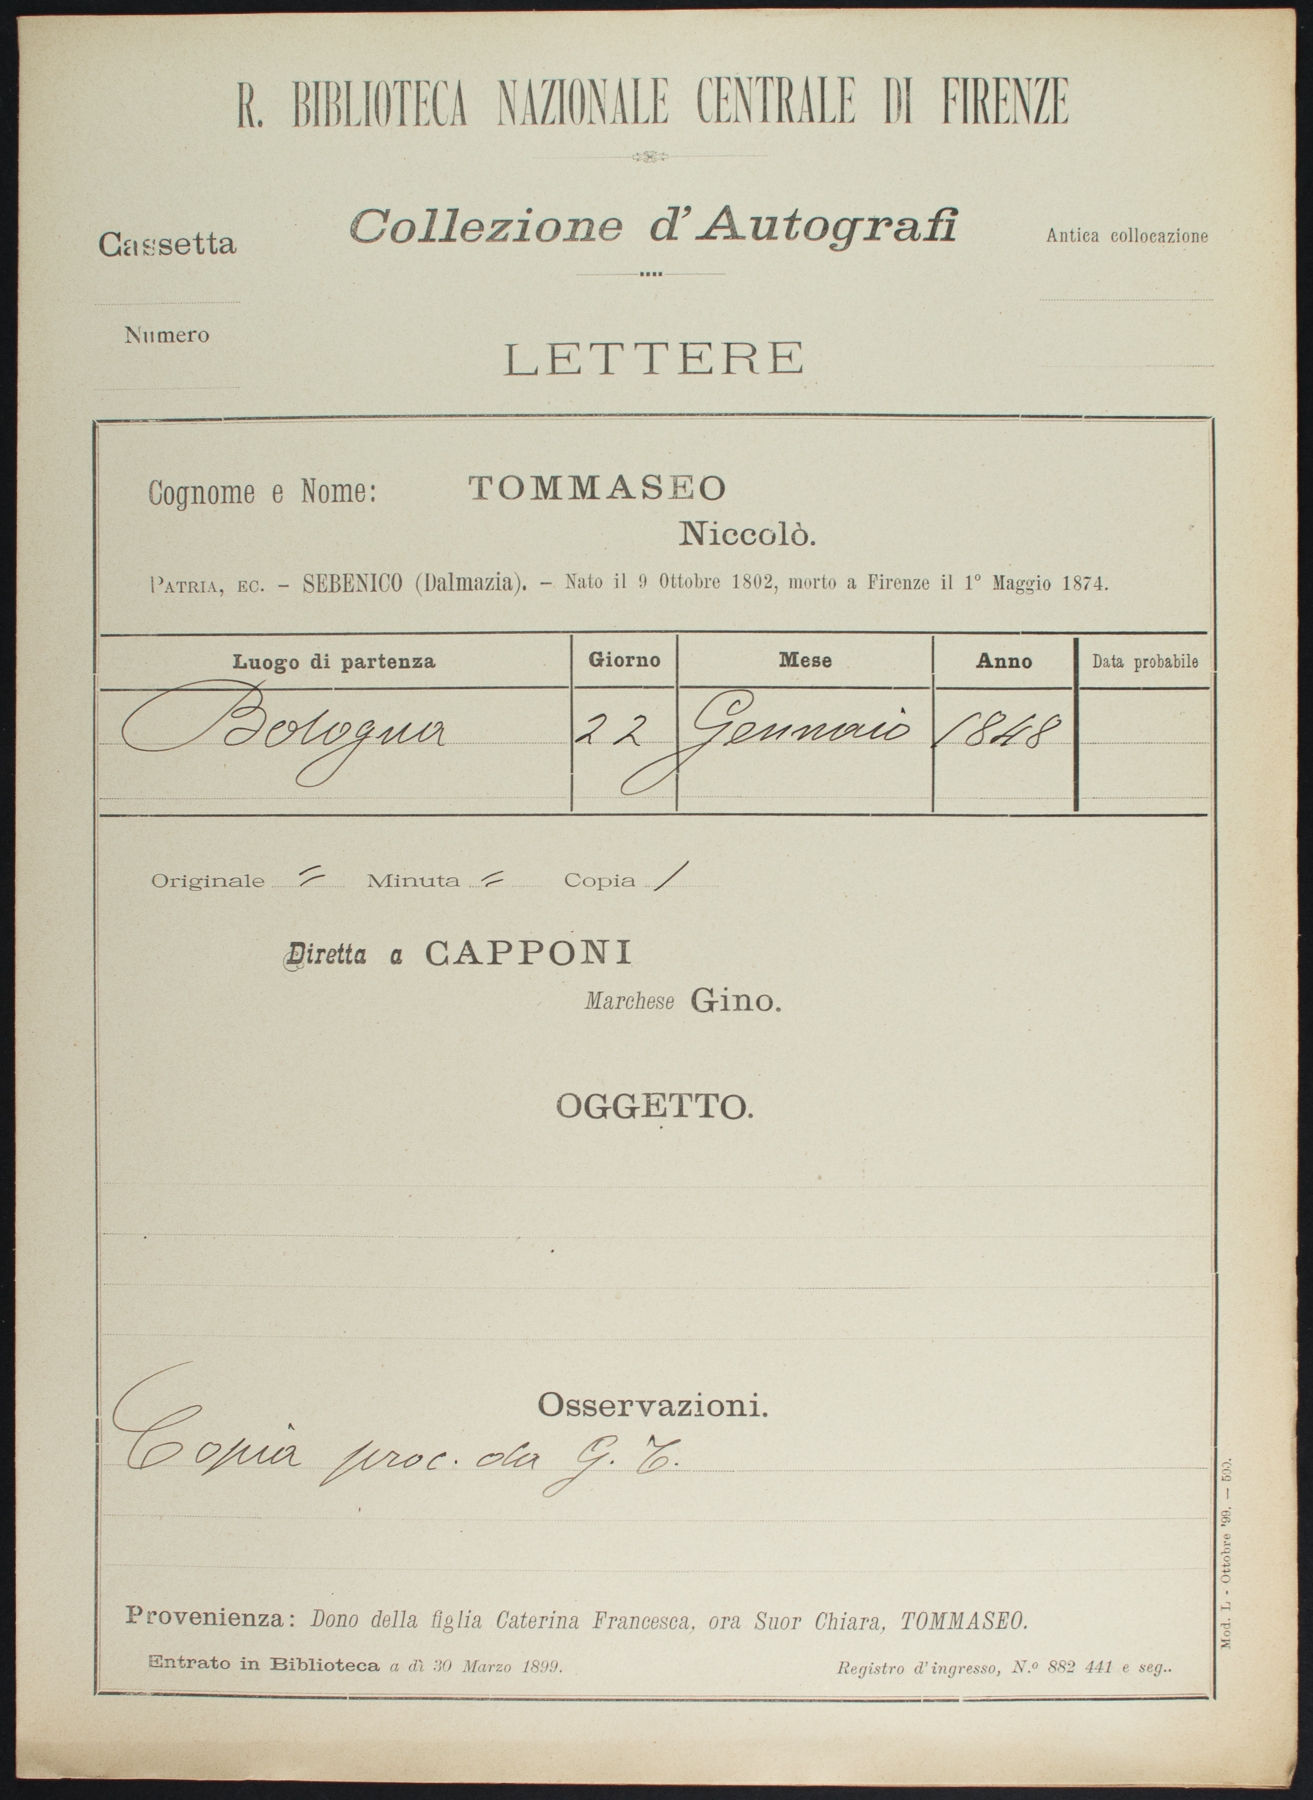 R. BIBLIOTECA NAZIONALE CENTRALE DI FIRENZE
Collezione d'Autografi
Cassetta
Antica collocazione
Numero
LETTERE
Cognome e Nome: TOMMASEO
Niccolò.
PATRIA, EC. – SEBENICO (Dalmazia). – Nato il 9 Ottobre 1802, morto a Firenze il 1° Maggio 1874.
Luogo di partenza Giorno Mese Anno Data probabile
Bologna 22 Gennaio 1848
Originale = Minuta = Copia /
Diretta a CAPPONI
Marchese Gino.
OGGETTO.
Osservazioni.
Copia proc. da G. T.
Provenienza: Dono della figlia Caterina Francesca, ora Suor Chiara, TOMMASEO.
Entrato in Biblioteca a dì 30 Marzo 1899. Registro d'ingresso, N.º 882 441 e seg..
Mod. L - Ottobre '99. — 500.